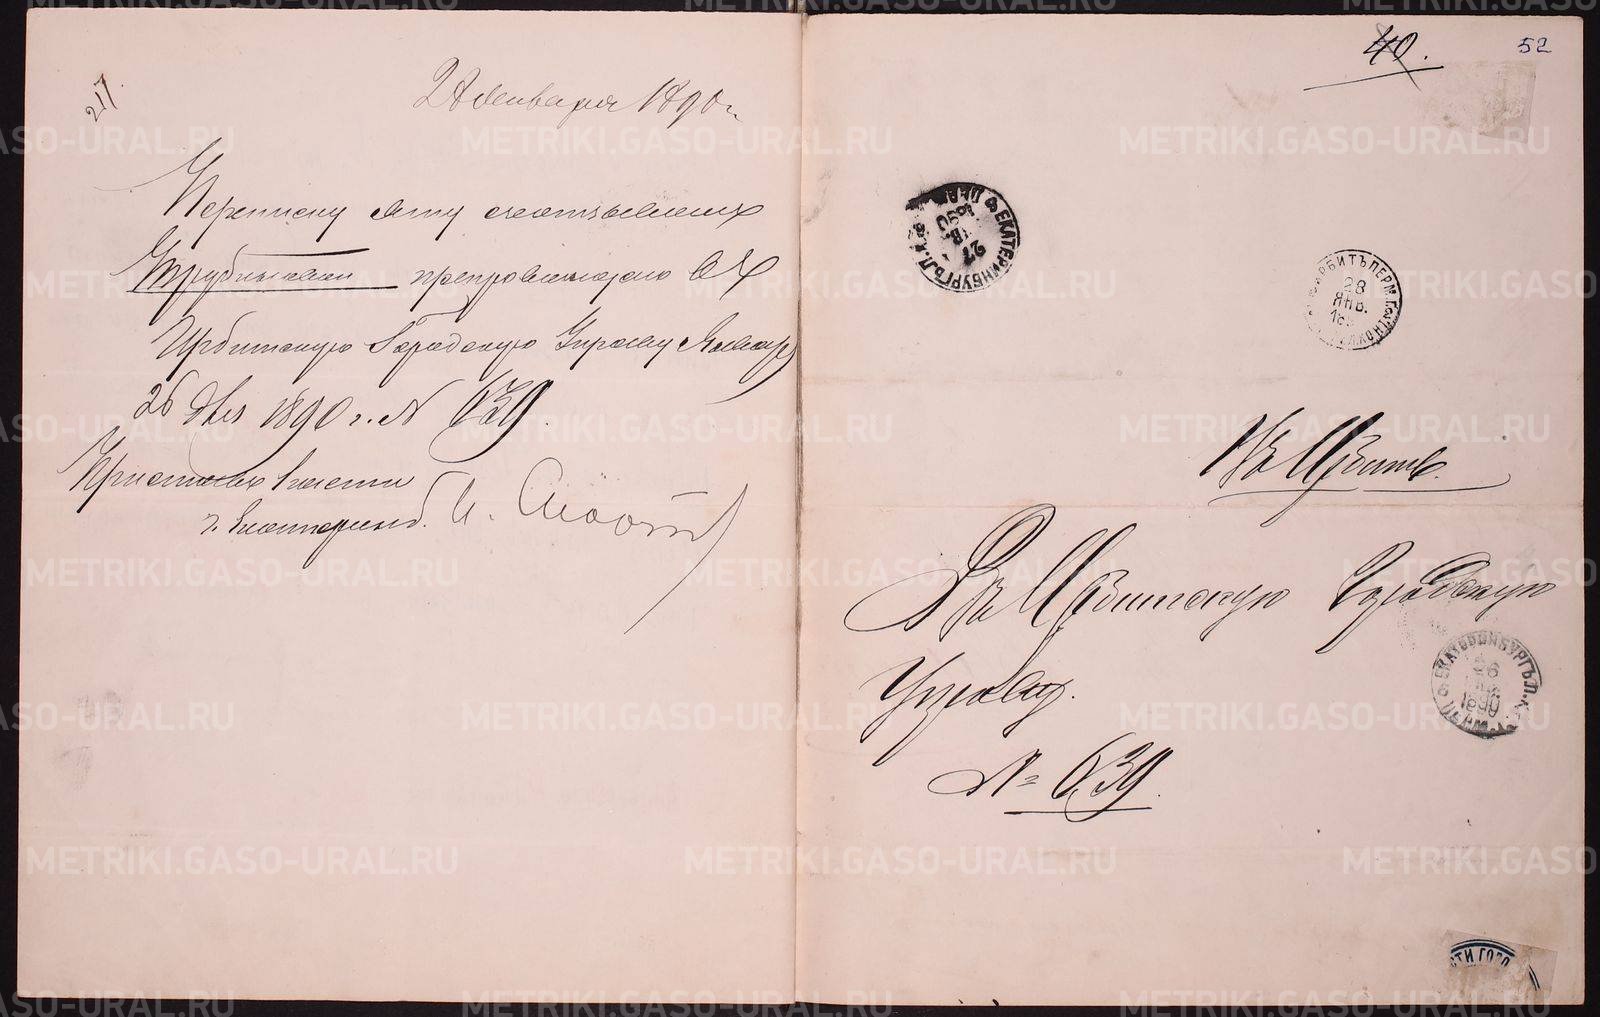 217.
28 Января 1890 г.
Переписку эту
препровождаю въ
Ирбитскую Городскую Управу Января
26 дня 1890 г. № 639.
Приставъ 1 части
г. Екатеринб.
40.
52
ЕКАТЕРИНБУРГЪ
27
1890
ИРБИТЪ ПЕРМ. Г.
28
ЯНВ.
Въ Ирбитъ.
Въ Ирбитскую Городскую
Управу.
№ 639.
ЕКАТЕРИНБУРГЪ
26
1890
ПЕРМ.
СТИ ГОРО
METRIKI.GASO-URAL.RU